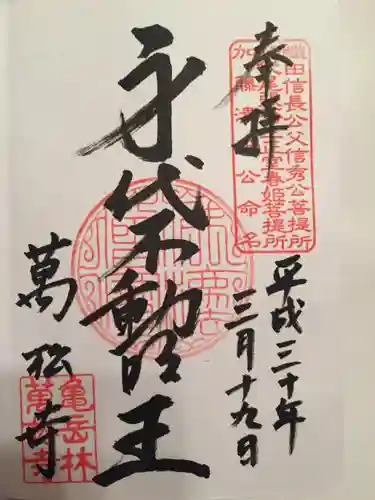 奉拝
織田信長公父信秀公菩提所
春姫菩提所
加藤清
公命名
平成三十年
三月十九日
身代不動王
萬松寺
亀岳林
萬松寺